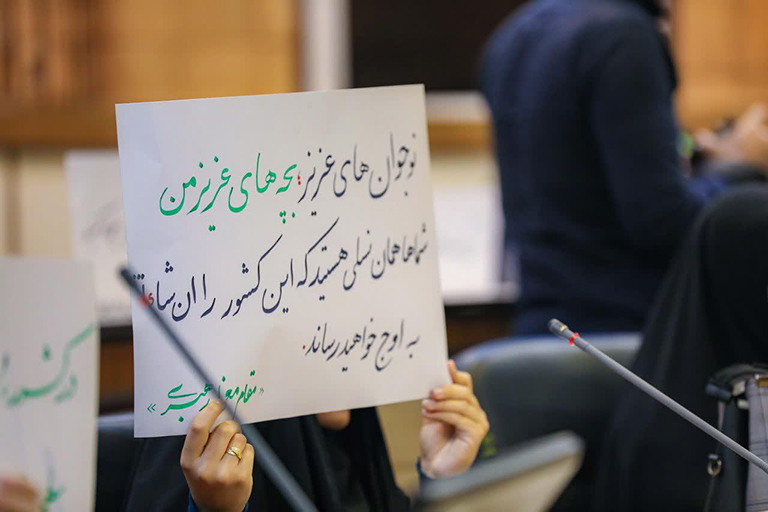 نوجوان های عزیز؛ بچه های عزیز من
شماها همان نسلی هستید که این کشور را ان شاءالله
به اوج خواهید رساند.
«مقام معظم رهبری»
در کشور